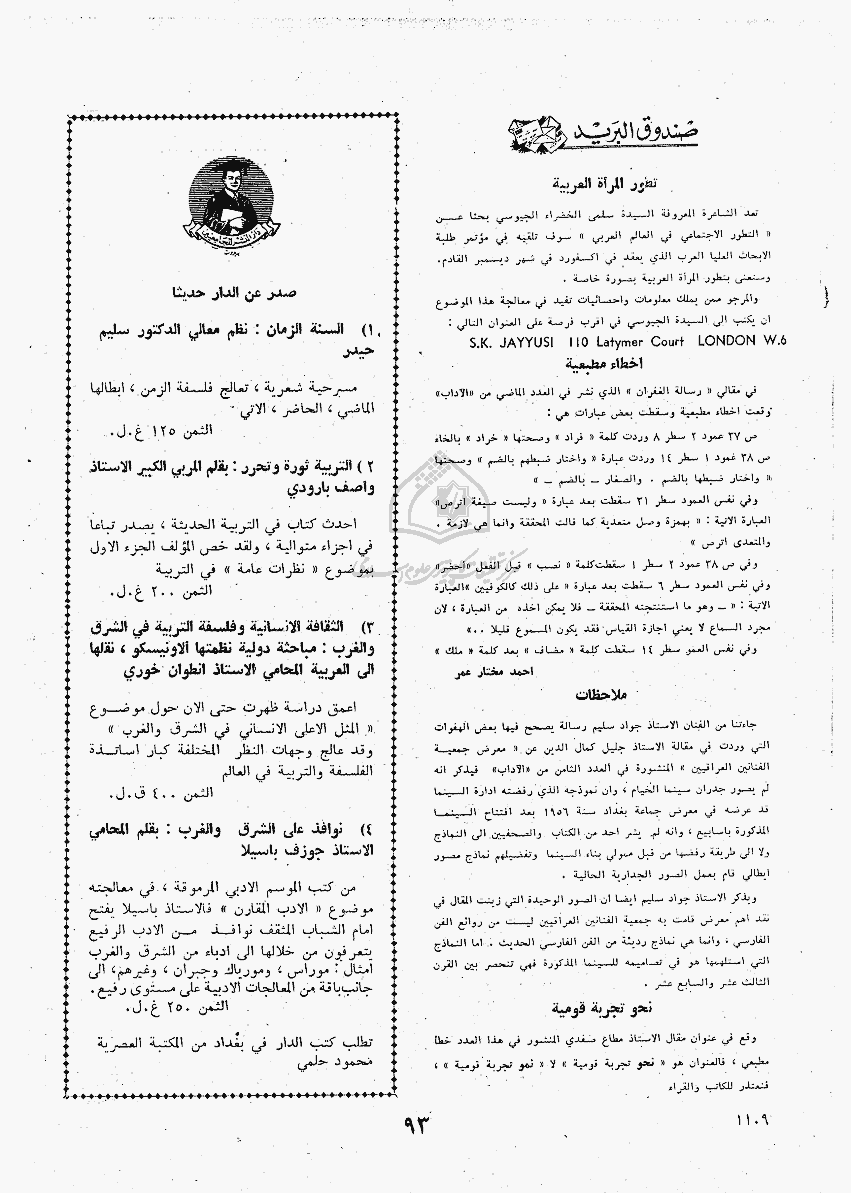 صندوق البريد
تطور المرأة العربية
تعد الشاعرة المعروفة السيدة سلمى الخضراء الجيوسي بحثا عـــن
« التطور الاجتماعي في العالم العربي » سوف تلقيه في مؤتمر طلبة
الابحاث العليا العرب الذي يعقد في اكسفورد في شهر ديسمبر القادم.
وستعنى بتطور المرأة العربية بصورة خاصة .
والمرجو ممن يملك معلومات واحصائيات تفيد في معالجة هذا الموضوع
ان يكتب الى السيدة الجيوسي في اقرب فرصة على العنوان التالي :
S.K. JAYYUSI 110 Latymer Court LONDON W.6
اخطاء مطبعية
في مقالي « رسالة الغفران » الذي نشر في العدد الماضي من «الآداب»
وقعت اخطاء مطبعية وسقطت بعض عبارات هي :
ص ٢٧ عمود ٢ سطر ٨ وردت كلمة « قراد » وصحتها « خراد » بالخاء
ص ٢٨ عمود ١ سطر ١٤ وردت عبارة « واختار ضبطهم بالضم » وصحتها
« واختار ضبطها بالضم . والصغار ــ بالضم ــ »
وفي نفس العمود سطر ٢١ سقطت بعد عبارة « وليست صيغة اترص»
العبارة الاتية : « بهمزة وصل متعدية كما قالت المحققة وانما هي لازمة .
والمتعدي اترص »
وفي ص ٢٨ عمود ٢ سطر ١ سقطت كلمة « نصب » قبل الفعل «احضر»
وفي نفس العمود سطر ٦ سقطت بعد عبارة « على ذلك كالكوفيين »العبارة
الاتية : « ــ وهو ما استنتجته المحققة ــ فلا يمكن اخذه من العبارة ، لان
مجرد السماع لا يعني اجازة القياس فقد يكون المسموع قليلا ..»
وفي نفس العمو سطر ١٤ سقطت كلمة « مضاف » بعد كلمة « ملك »
احمد مختار عمر
ملاحظات
جاءتنا من الفنان الاستاذ جواد سليم رسالة يصحح فيها بعض الهفوات
التي وردت في مقالة الاستاذ جليل كمال الدين عن « معرض جمعيـــة
الفنانين العراقيين » المنشورة في العدد الثامن من «الآداب» فيذكر انه
لم يصور جدران سينما الخيام ، وان نموذجه الذي رفضته ادارة السينما
قد عرضه في معرض جماعة بغداد سنة ١٩٥٦ بعد افتتاح السينمـا
المذكورة باسابيع ، وانه لم يشر احد من الكتاب والصحفيين الى النماذج
ولا الى طريقة رفضها من قبل ممولي بناء السينما وتفضيلهم نماذج مصور
ايطالي قام بعمل الصور الجدارية الحالية .
ويذكر الاستاذ جواد سليم ايضا ان الصور الوحيدة التي زينت المقال في
نقد اهم معرض قامت به جمعية الفنانين العراقيين ليست من روائع الفن
الفارسي ، وانما هي نماذج رديئة من الفن الفارسي الحديث . اما النماذج
التي استلهمها هو في تصاميمه للسينما المذكورة فهي تنحصر بين القرن
الثالث عشر والسابع عشر .
نحو تجربة قومية
وقع في عنوان مقال الاستاذ مطاع صفدي المنشور في هذا العدد خطا
مطبعي ، فالعنوان هو « نحو تجربة قومية » لا « نمو تجربة قومية » ،
فنعتذر للكاتب والقراء
دار النشر للجامعيين
بيروت
صدر عن الدار حديثا
١) السنة الزمان : نظم معالي الدكتور سليم
حيدر
مسرحية شعرية ، تعالج فلسفة الزمن ، ابطالها
الماضي ، الحاضر ، الاتي
الثمن ١٢٥ غ.ل.
٢ ) التربية ثورة وتحرر : بقلم المربي الكبير الاستاذ
واصف بارودي
احدث كتاب في التربية الحديثة ، يصدر تباعا
في اجزاء متوالية ، ولقد خص المؤلف الجزء الاول
بموضوع « نظرات عامة » في التربية
الثمن ٢٠٠ غ.ل.
٣) الثقافة الانسانية وفلسفة التربية في الشرق
والغرب : مباحثة دولية نظمتها الاونيسكو ، نقلها
الى العربية المحامي الاستاذ انطوان خوري
اعمق دراسة ظهرت حتى الان حول موضـــوع
« المثل الاعلى الانساني في الشرق والغرب »
وقد عالج وجهات النظر المختلفة كبار اساتـــذة
الفلسفة والتربية في العالم
الثمن ٤٠٠ ق.ل.
٤) نوافذ على الشرق والغرب : بقلم المحامي
الاستاذ جوزف باسيلا
من كتب الموسم الادبي المرموقة ، في معالجته
موضوع « الادب المقارن » فالاستاذ باسيلا يفتح
امام الشباب المثقف نوافـــذ مـــن الادب الرفيع
يتعرفون من خلالها الى ادباء من الشرق والغرب
امثال : موراس ، ومورياك وجبران ، وغيرهم، الى
جانب باقة من المعالجات الادبية على مستوى رفيع.
الثمن ٢٥٠ غ.ل.
تطلب كتب الدار في بغداد من المكتبة العصرية
محمود حلمي
٩٣
١١٠٩